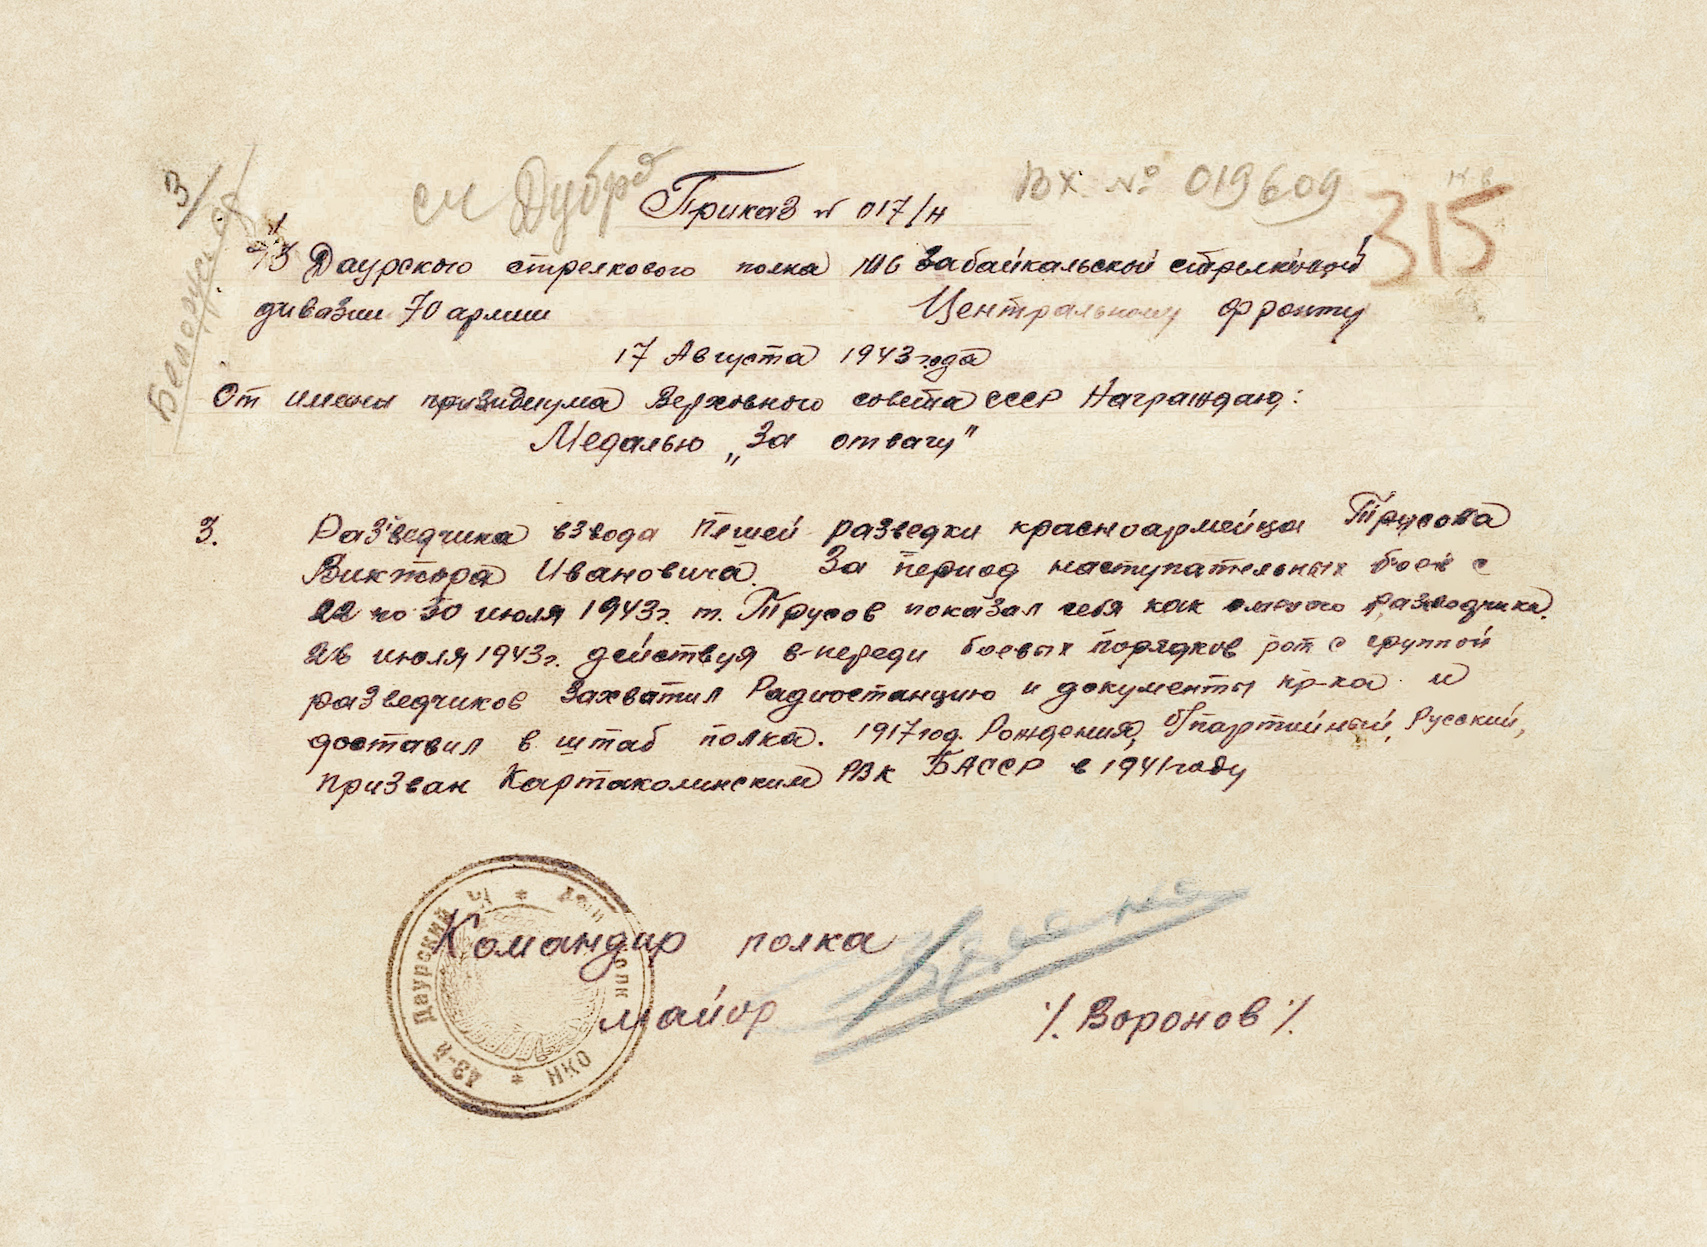 3/
Приказ № 017/н
Вх № 019609
315
43 Даурского стрелкового полка 106 Забайкальской стрелковой
дивизии 70 армии Центральному фронту
17 Августа 1943 года
От имени призидиума Верховного совета СССР Награждаю:
Медалью „За отвагу"
3. Разведчика взвода пешей разведки красноармейца Трусова
Виктора Ивановича. За период наступательных боев с
22 по 30 июля 1943г. т. Трусов показал себя как смелого разведчика.
26 июля 1943г. действуя в-переди боевых порядков рот с группой
разведчиков захватил Радиостанцию и документы пр-ка и
доставил в штаб полка. 1917 год. Рождения, б/партийный, Русский,
призван Картаколинским РВК БАССР в 1941 году
Командир полка
майор /. Воронов /.
43-й Даурский
НКО